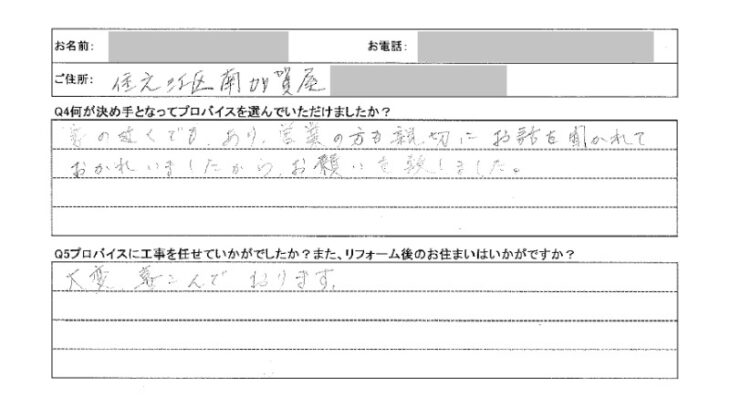 お名前: お電話:
ご住所: 住之江区南加賀屋
Q4何が決め手となってプロバイスを選んでいただけましたか?
家の近くでも あり、営業の方も親切に お話を聞かれて
おかれいましたから、お願いを致しました。
Q5プロバイスに工事を任せていかがでしたか?また、リフォーム後のお住まいはいかがですか?
大変 喜こんで おります。